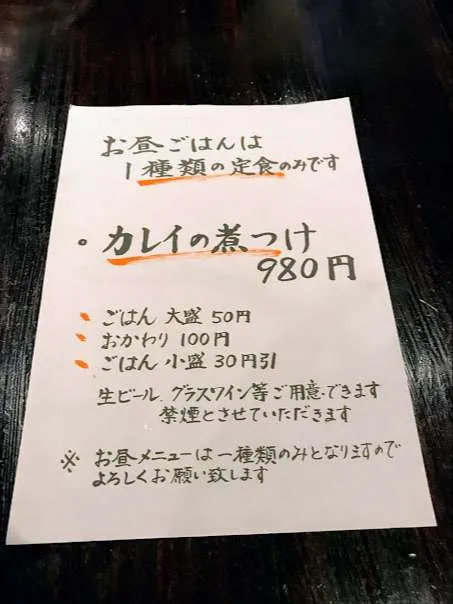 お昼ごはんは
1種類の定食のみです
。カレイの煮つけ
980円
ごはん 大盛 50円
おかわり 100円
ごはん 小盛 30円引
生ビール、グラスワイン等ご用意できます
禁煙とさせていただきます
※ お昼メニューは一種類のみとなりますので
よろしくお願い致します